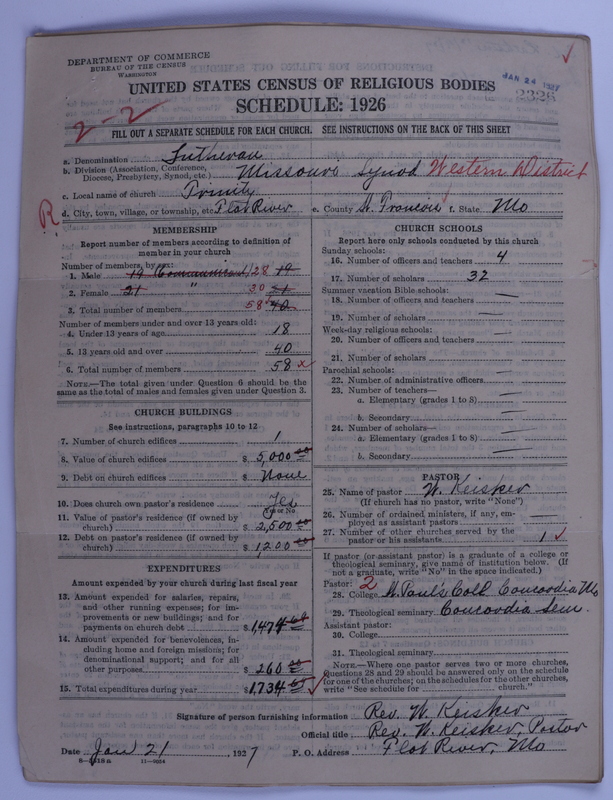 DEPARTMENT OF COMMERCE
BUREAU OF THE CENSUS
WASHINGTON
JAN 24 1927
2326
UNITED STATES CENSUS OF RELIGIOUS BODIES
SCHEDULE: 1926
2-2
FILL OUT A SEPARATE SCHEDULE FOR EACH CHURCH. SEE INSTRUCTIONS ON THE BACK OF THIS SHEET
a. Denomination Lutheran
b. Division (Association, Conference, Diocese, Presbytery, Synod, etc.) Missouri Synod Western District
c. Local name of church Trinity
R
d. City, town, village, or township, etc. Flat River e. County St. Francois f. State Mo
MEMBERSHIP
Report number of members according to definition of
member in your church
Number of members, by sex:
1. Male 19 (Communicant) 28 19
2. Female 21 " 30 21
3. Total number of members 58 40
Number of members under and over 13 years old:
4. Under 13 years of age 18
5. 13 years old and over 40
6. Total number of members 58 x
NOTE.—The total given under Question 6 should be the
same as the total of males and females given under Question 3.
CHURCH BUILDINGS
See instructions, paragraphs 10 to 12
7. Number of church edifices 1
8. Value of church edifices $ 5,000 00
9. Debt on church edifices $ None
10. Does church own pastor's residence Yes
(Yes or No)
11. Value of pastor's residence (if owned by
church) $ 2,500 00
12. Debt on pastor's residence (if owned by
church) $ 1200 00
EXPENDITURES
Amount expended by your church during last fiscal year
13. Amount expended for salaries, repairs,
and other running expenses; for im-
provements or new buildings; and for
payments on church debt $ 1,474
14. Amount expended for benevolences, in-
cluding home and foreign missions; for
denominational support; and for all
other purposes $ 260
15. Total expenditures during year $ 1,734
CHURCH SCHOOLS
Report here only schools conducted by this church
Sunday schools:
16. Number of officers and teachers 4
17. Number of scholars 32
Summer vacation Bible schools:
18. Number of officers and teachers —
19. Number of scholars —
Week-day religious schools:
20. Number of officers and teachers —
21. Number of scholars —
Parochial schools:
22. Number of administrative officers —
23. Number of teachers—
a. Elementary (grades 1 to 8) —
b. Secondary —
24. Number of scholars—
a. Elementary (grades 1 to 8) —
b. Secondary —
PASTOR
25. Name of pastor W. Keisker
(If church has no pastor, write "None")
26. Number of ordained ministers, if any, em-
ployed as assistant pastors —
27. Number of other churches served by the
pastor or his assistants 1 ✓
If pastor (or assistant pastor) is a graduate of a college or
theological seminary, give name of institution below. (If
not a graduate, write "No" in the space indicated.)
Pastor: 2
28. College St Paul's Coll Concordia Mo
29. Theological seminary Concordia Sem.
Assistant pastor:
30. College
31. Theological seminary
NOTE.—Where one pastor serves two or more churches,
Questions 28 and 29 should be answered only on the schedule
for one of the churches; on the schedules for the other churches,
write "See schedule for ........ church."
Signature of person furnishing information Rev. W. Keisker
Official title Rev. W. Keisker, Pastor
Date Jan 21, 1927 P. O. Address Flat River, Mo
11—9034